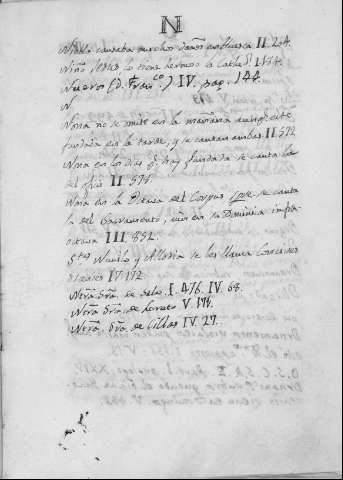 N
Niebla causaba muchos daños en Huesca II. 254.
Niño Jesus lo tiene hermoso la Cathedl. I. 154.
Nuero (D. Franco.) IV. pag. 144.
N
Nona no se omite en la mañana aunque este
fundada en la tarde, y se cantan ambas. II. 572
Nona en los dias q hay fundada se canta la
del oficio II. 575.
Nona en la Octava del Corpus se canta
la del Sacramento, aun en la Dominica infra
octava III. 852.
Stas. Nunila y Alodia se les llama
IV. 172.
Ntra. Sra. de Salas. I. 476. IV. 68.
Ntra. Sra. de Loreto V. 175.
Ntra. Sra. de Cillas IV. 27.